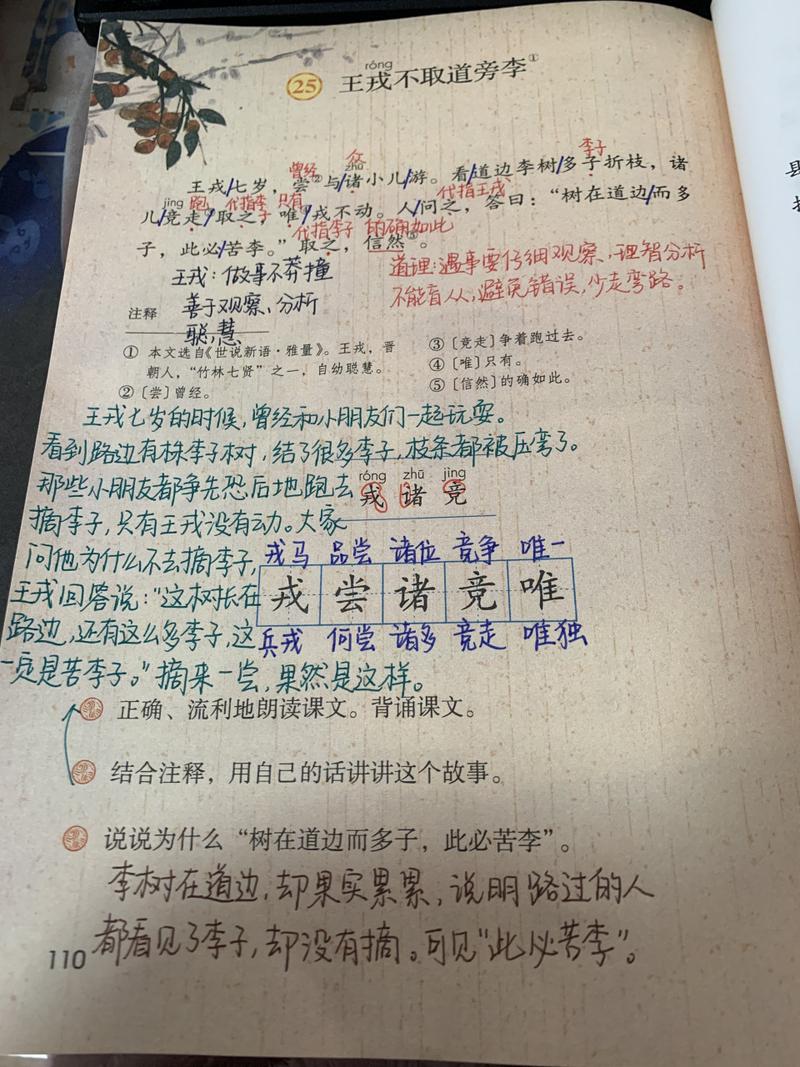 róng
25 王戎不取道旁李①
曾经 众 李子
zhū
王戎/七岁，尝②与/诸小儿/游。看/道边李树/多子折枝，诸
jìng 跑 代指李子 只有 代指王戎
儿/竞走③/取之，唯④/戎不动。人/问之，答曰：“树在道边/而多
代指李子 的确如此
子，此必/苦李。”取之，信然⑤。
王戎：做事不莽撞
善于观察、分析
聪慧
道理：遇事要仔细观察、理智分析
不能盲从，避免错误，少走弯路。
注释
① 本文选自《世说新语·雅量》。王戎，晋
朝人，“竹林七贤”之一，自幼聪慧。
②〔尝〕曾经。
③〔竞走〕争着跑过去。
④〔唯〕只有。
⑤〔信然〕的确如此。
王戎七岁的时候，曾经和小朋友们一起玩耍。
看到路边有株李子树，结了很多李子，枝条都被压弯了。
那些小朋友都争先恐后地跑去
摘李子，只有王戎没有动。大家
问他为什么不去摘李子，
王戎回答说：“这树长在
路边，还有这么多李子，这
一定是苦李子。”摘来一尝，果然是这样。
róng zhū jìng
戎 诸 竞
戎马 品尝 诸位 竞争 唯一
戎 尝 诸 竞 唯
兵戎 何尝 诸多 竞走 唯独
正确、流利地朗读课文。背诵课文。
结合注释，用自己的话讲讲这个故事。
说说为什么“树在道边而多子，此必苦李”。
李树在道边，却果实累累，说明路过的人
都看见了李子，却没有摘。可见“此必苦李”。
110